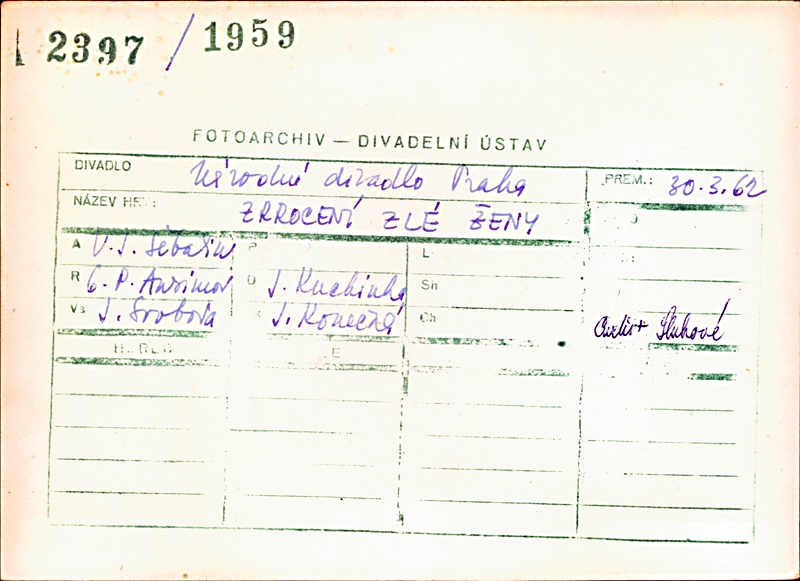 2397 / 1959
FOTOARCHIV — DIVADELNÍ ÚSTAV
DIVADLO Národní divadlo Praha PREM.: 30.3.62
NÁZEV HRY: ZKROCENÍ ZLÉ ŽENY
A V. J. Šebalin P L
R G. P. Ansimov D J. Kuchinka Sh
Vs J. Svoboda K J. Konečná Ch